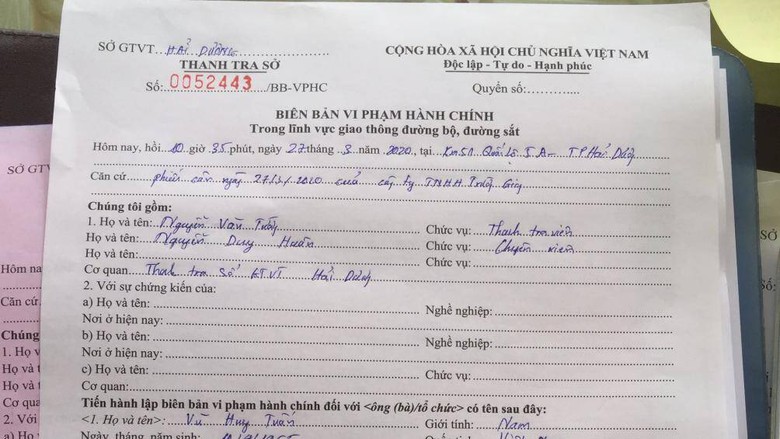 SỞ GTVT HẢI DƯƠNG
THANH TRA SỞ
Số: 0052443 /BB-VPHC
CỘNG HÒA XÃ HỘI CHỦ NGHĨA VIỆT NAM
Độc lập - Tự do - Hạnh phúc
Quyển số:............
BIÊN BẢN VI PHẠM HÀNH CHÍNH
Trong lĩnh vực giao thông đường bộ, đường sắt
Hôm nay, hồi 10 giờ 35 phút, ngày 27 tháng 3 năm 2020, tại Km51 Quốc lộ 5A - TP Hải Dương
Căn cứ phiếu cân ngày 27/3/2020 của công ty TNHH
Chúng tôi gồm:
1. Họ và tên: Nguyễn Văn Chức vụ: Thanh tra viên
Họ và tên: Nguyễn Duy Huân Chức vụ: Chuyên viên
Họ và tên: Chức vụ:
Cơ quan Thanh tra Sở GTVT Hải Dương
2. Với sự chứng kiến của:
a) Họ và tên: Nghề nghiệp:
Nơi ở hiện nay:
b) Họ và tên: Nghề nghiệp:
Nơi ở hiện nay:
c) Họ và tên: Chức vụ:
Cơ quan:
Tiến hành lập biên bản vi phạm hành chính đối với <ông (bà)/tổ chức> có tên sau đây:
<1. Họ và tên>: Vũ Huy Tuấn Giới tính: Nam
Ngày, tháng, năm sinh:
SỞ GTV
Hôm na
Căn cứ
Chúng
1. Họ v
Họ và t
Họ và t
Cơ qua
2. Với
Số: